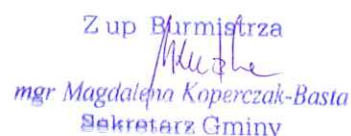 Z up Burmistrza
mgr Magdalena Koperczak-Basta
Sekretarz Gminy